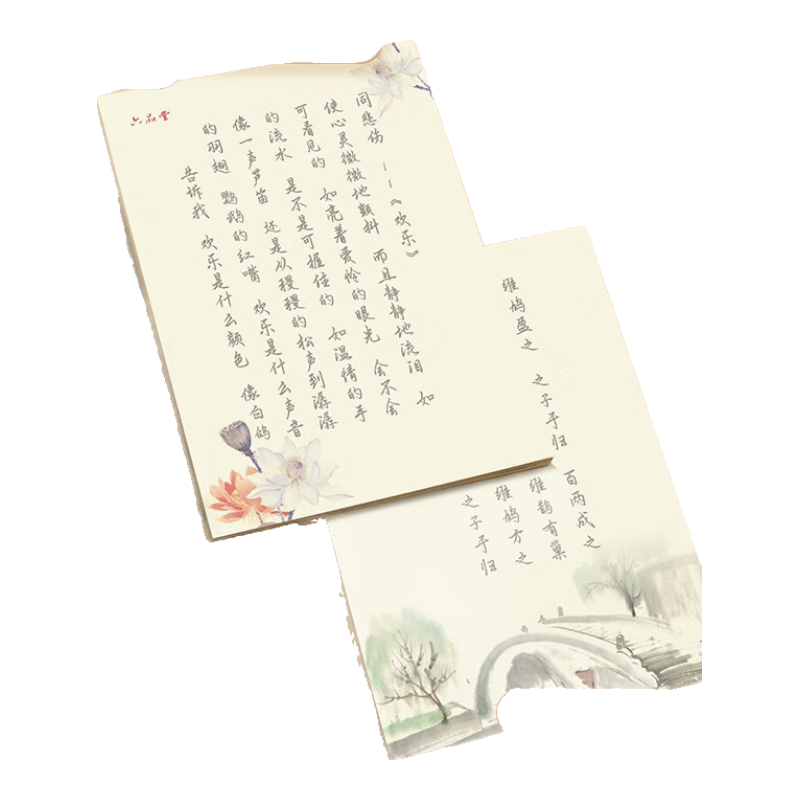 六品堂
告诉我 欢乐是什么颜色 像白鸽
的羽翅 鹦鹉的红嘴 欢乐是什么声音
像一声芦笛 还是从稷稷的松声到潺潺
的流水 是不是可握住的 如温情的手
可看见的 如亮着爱怜的眼光 会不会
使心灵微微地颤抖 而且静静地流泪 如
同悲伤 ——《欢乐》
之子于归
维鸠方之
维鹊有巢
维鸠盈之 之子于归 百两成之